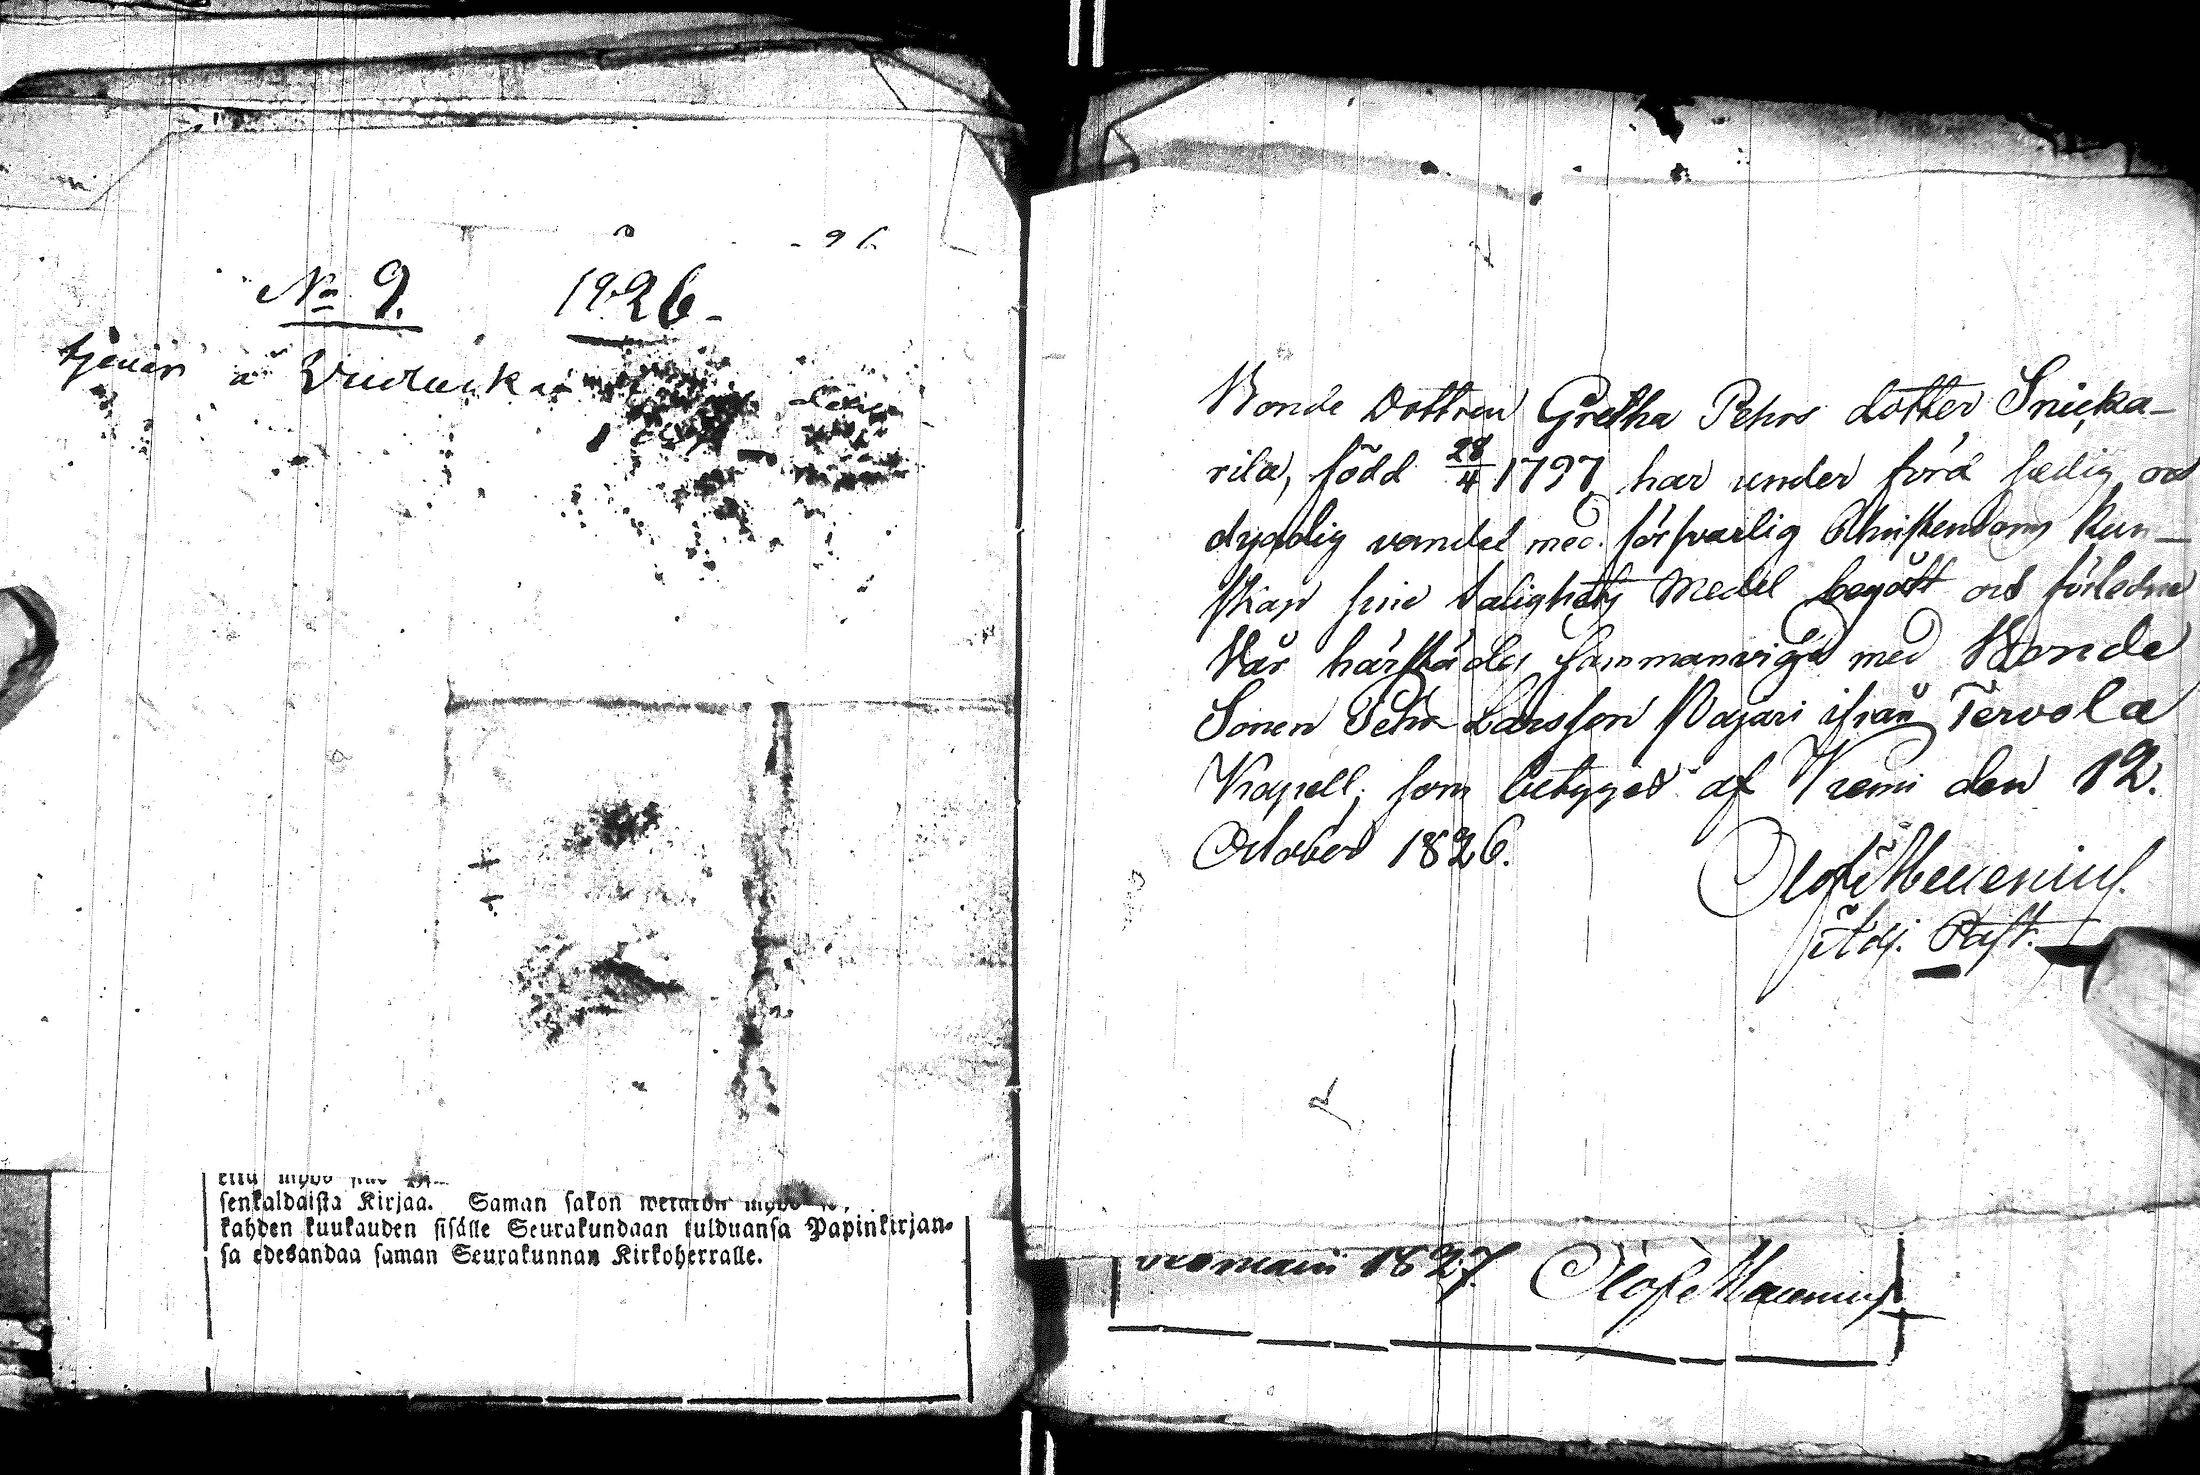 - 96
No 9. 1826-
tjenar å
ettu myös
senkaldaista Kirjaa. Saman sakon wetäkön myös
kahden kuukauden sisälle Seurakundaan tulduansa Papinkirjan-
sa edesandaa saman Seurakunnan Kirkoherralle.
Bonde Dottren Gretha Pehrs dotter Snicka-
rila, född 28/4 1797 har under förd sedig och
dygdig vandel med försvarlig Christendoms Kun-
skap sine Salighets Medel begått och förledne
Vår härstädes sammanvigd med Bonde
Sonen Pehr Larsson Pajari ifrån Tervola
Kapell; som betyget af Kemi den 12.
October 1826.
Olof Mecenius.
Adj. Past.
1827. Olof Mecenius